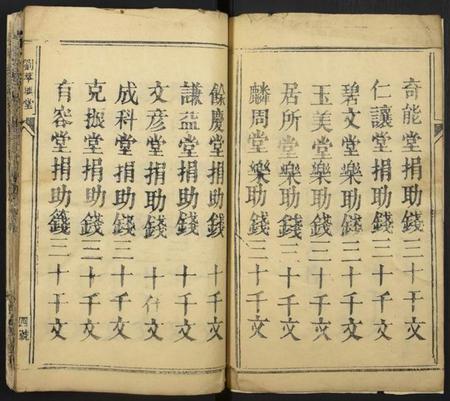 奇能堂捐助錢三十千文
仁讓堂捐助錢三十千文
碧文堂樂助錢三十千文
玉美堂樂助錢三十千文
居所堂樂助錢三十千文
麟周堂樂助錢三十千文
餘慶堂捐助錢十千文
謙益堂捐助錢十千文
文彥堂捐助錢十千文
成科堂捐助錢三十千文
克振堂捐助錢三十千文
有容堂捐助錢三十千文
四號